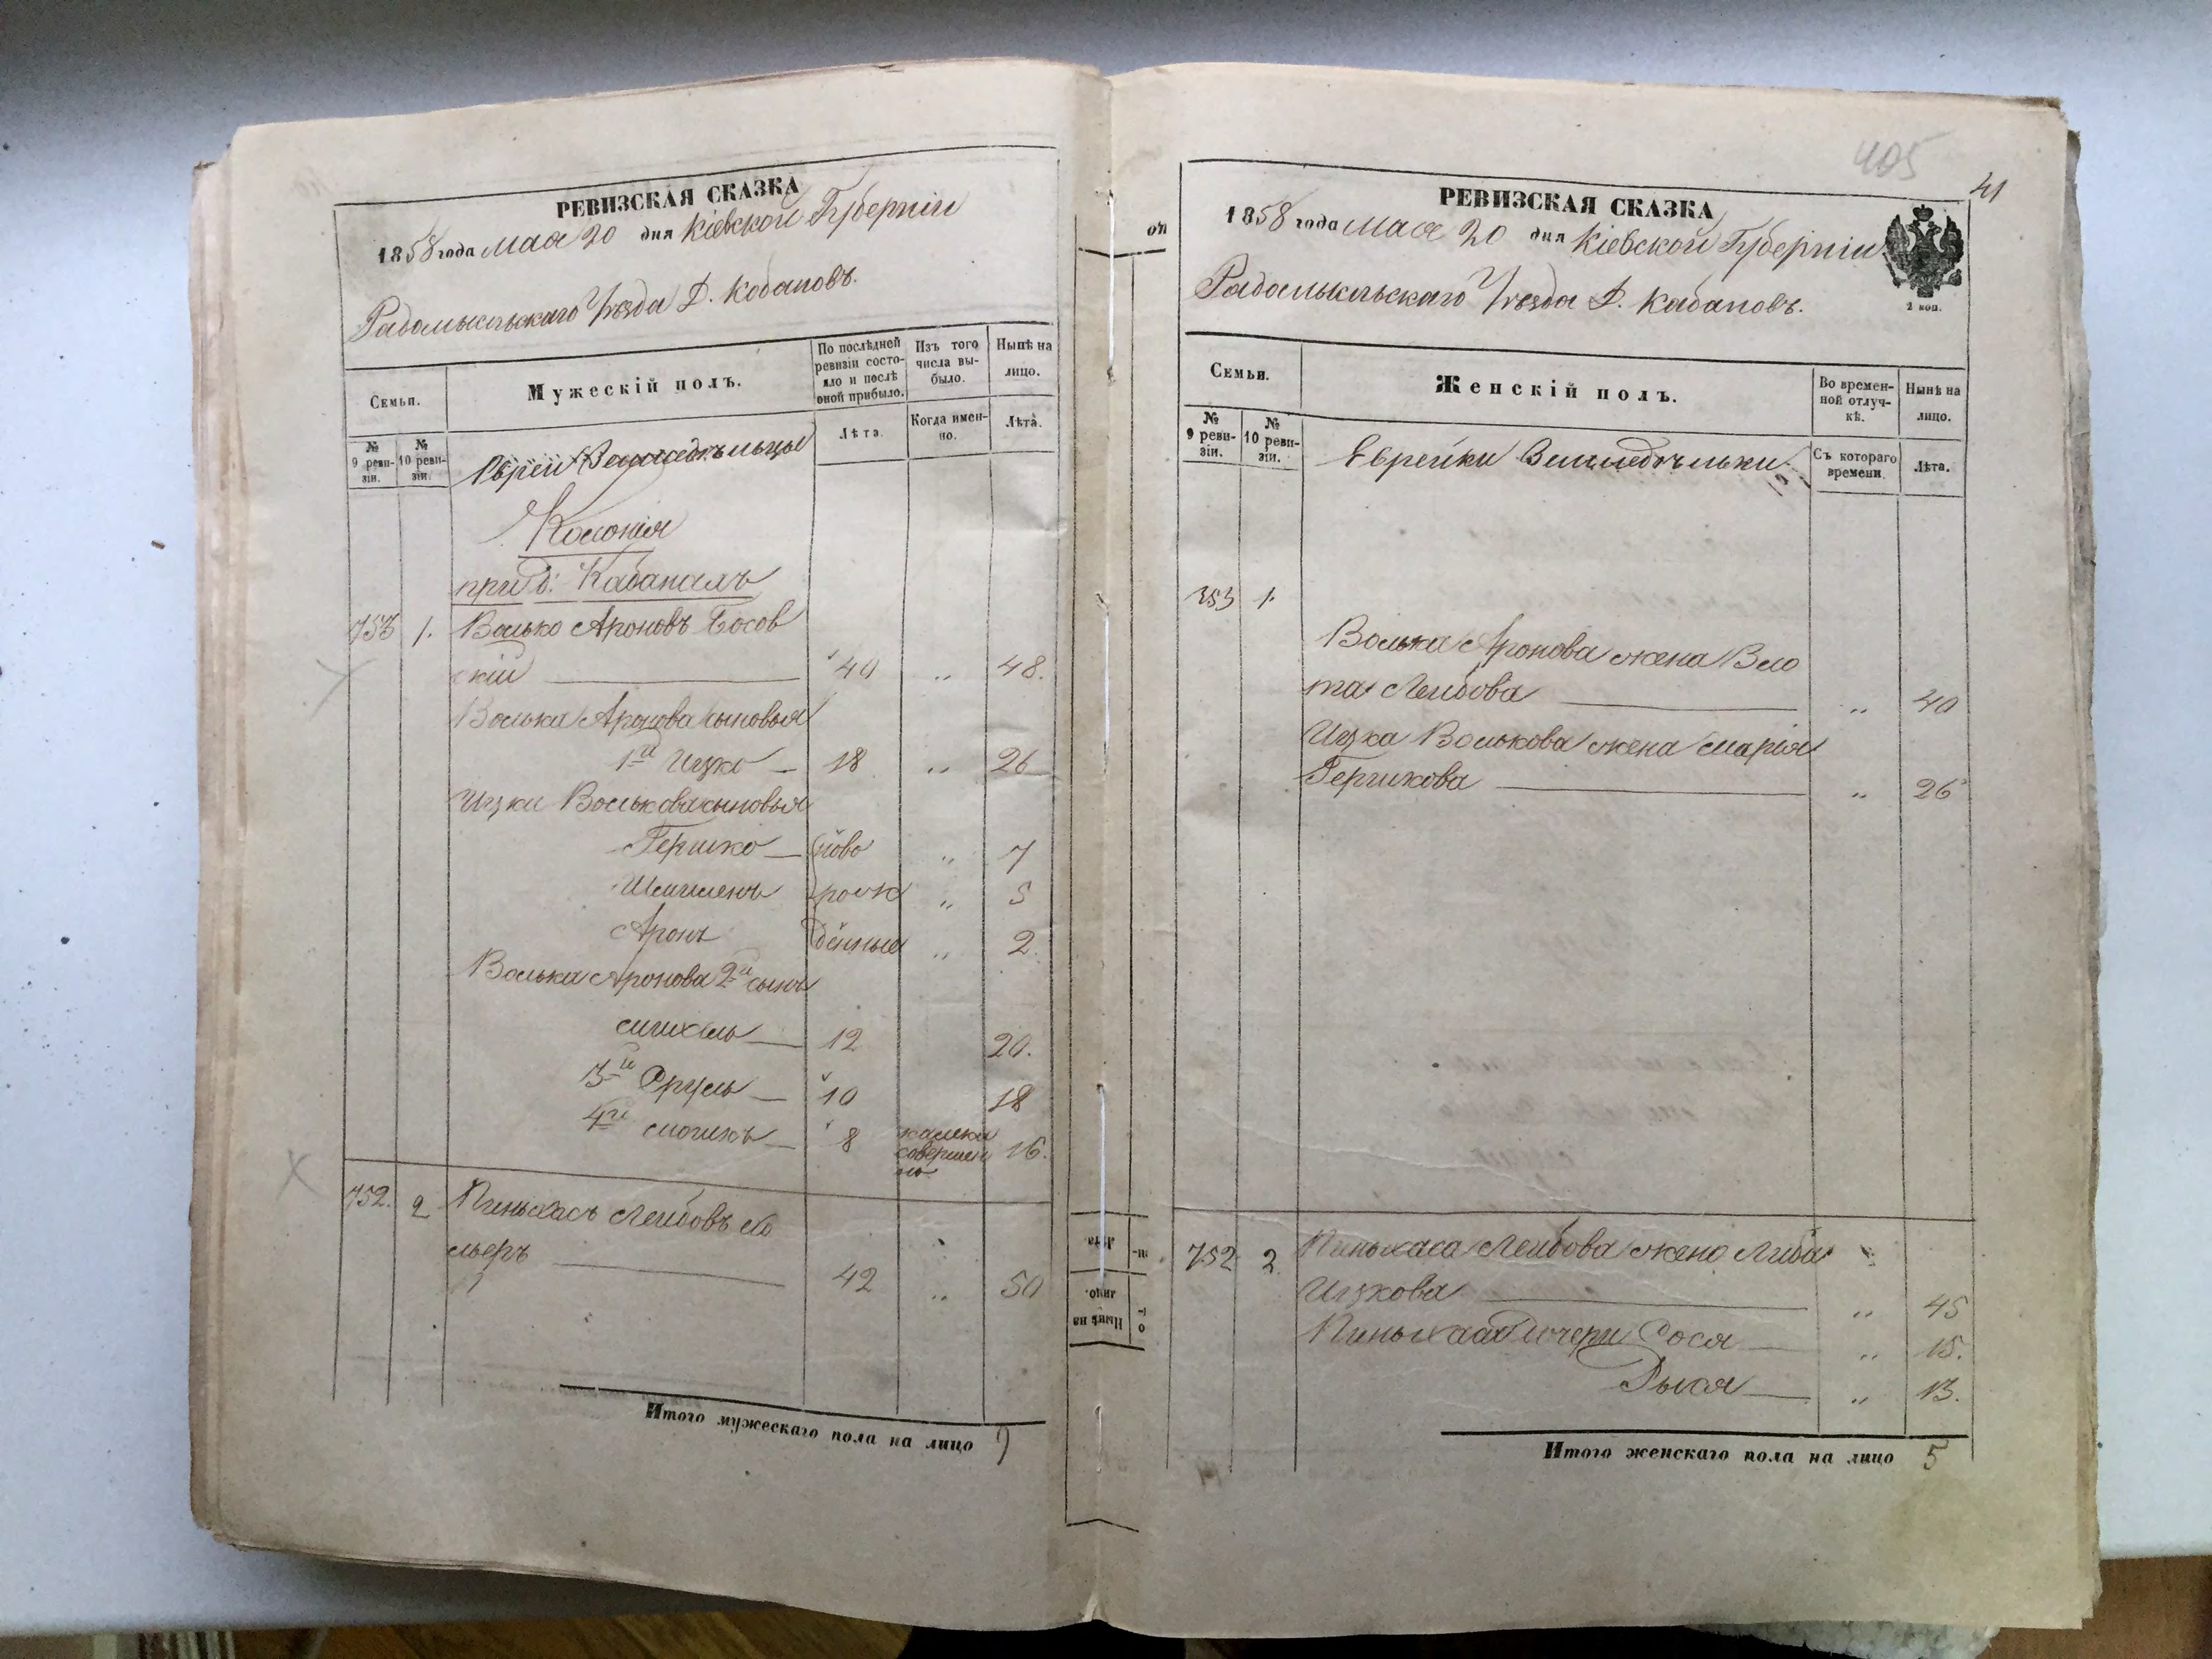 РЕВИЗСКАЯ СКАЗКА
1858 года мая 20 дня Кіевской Губерніи
Радомысльскаго Уѣзда Д. Кобановъ.
Семьи.
Мужескій полъ.
По послѣдней ревизіи состояло и послѣ оной прибыло.
Изъ того числа выбыло.
Нынѣ на лицо.
№ 9 ревизіи.
№ 10 ревизіи.
Лѣта.
Когда именно.
Лѣта.
Евреи Земледѣльцы
Колонія
при д: Кабанахъ
753 1. Волько Ароновъ Босов
скій 40 „ 48.
Волька Аронова сыновья
1й Ицко 18 „ 26
Ицка Волькова сыновья
Гершко ново „ 7
рож „ 5
Аронъ денные „ 2.
Волька Аронова 2й сынъ
Михель 12 20.
3й Сруль 10 18
4й Мошко 8 калека совершенно 16.
752. 2 Пиньхасъ Лейбовъ
42 „ 50
Итого мужескаго пола на лицо 9
405
41
РЕВИЗСКАЯ СКАЗКА
1858 года мая 20 дня Кіевской Губерніи
2 коп.
Радомысльскаго Уѣзда Д. Кабановъ.
Семьи.
Женскій полъ.
Во временной отлучкѣ.
Нынѣ на лицо.
№ 9 ревизіи.
№ 10 ревизіи.
Съ котораго времени
Лѣта.
Еврейки Земледѣльки
353 1.
Волька Аронова жена
Лейбова „ 40
Ицка Волькова жена Марія
Гершкова „ 26
752 2. Пиньхаса Лейбова жена Либа
Ицкова „ 45
Пиньхаса дочери Сося „ 15.
„ 13.
Итого женскаго пола на лицо 5
Лѣта
Нынѣ на лицо.